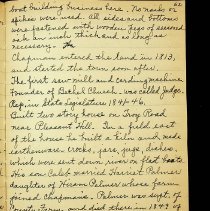 62
boat building business here. No nails or
spikes were used. All sides and bottoms
were fastened with wooden pegs of seasoned
oak an inch thick and as long as
necessary.
Chapman entered the land in 1813,
and started the town soon after.
The first saw mill and carding machine.
Founder of Bethel Church. was called Judge.
Rep. in State Legislature 1845-46.
Built two story house on Troy Road
near Pleasant Hill. In a field east
of the house he built a kiln and made
earthenware crocks, jars, jugs, dishes,
which were sent down river on flat boats
His son Caleb married Harriet Palmer
daughter of Hiram Palmer whose farm
joined Chapmans. Palmer was supt. of
County Farm, and died there in 1849 of